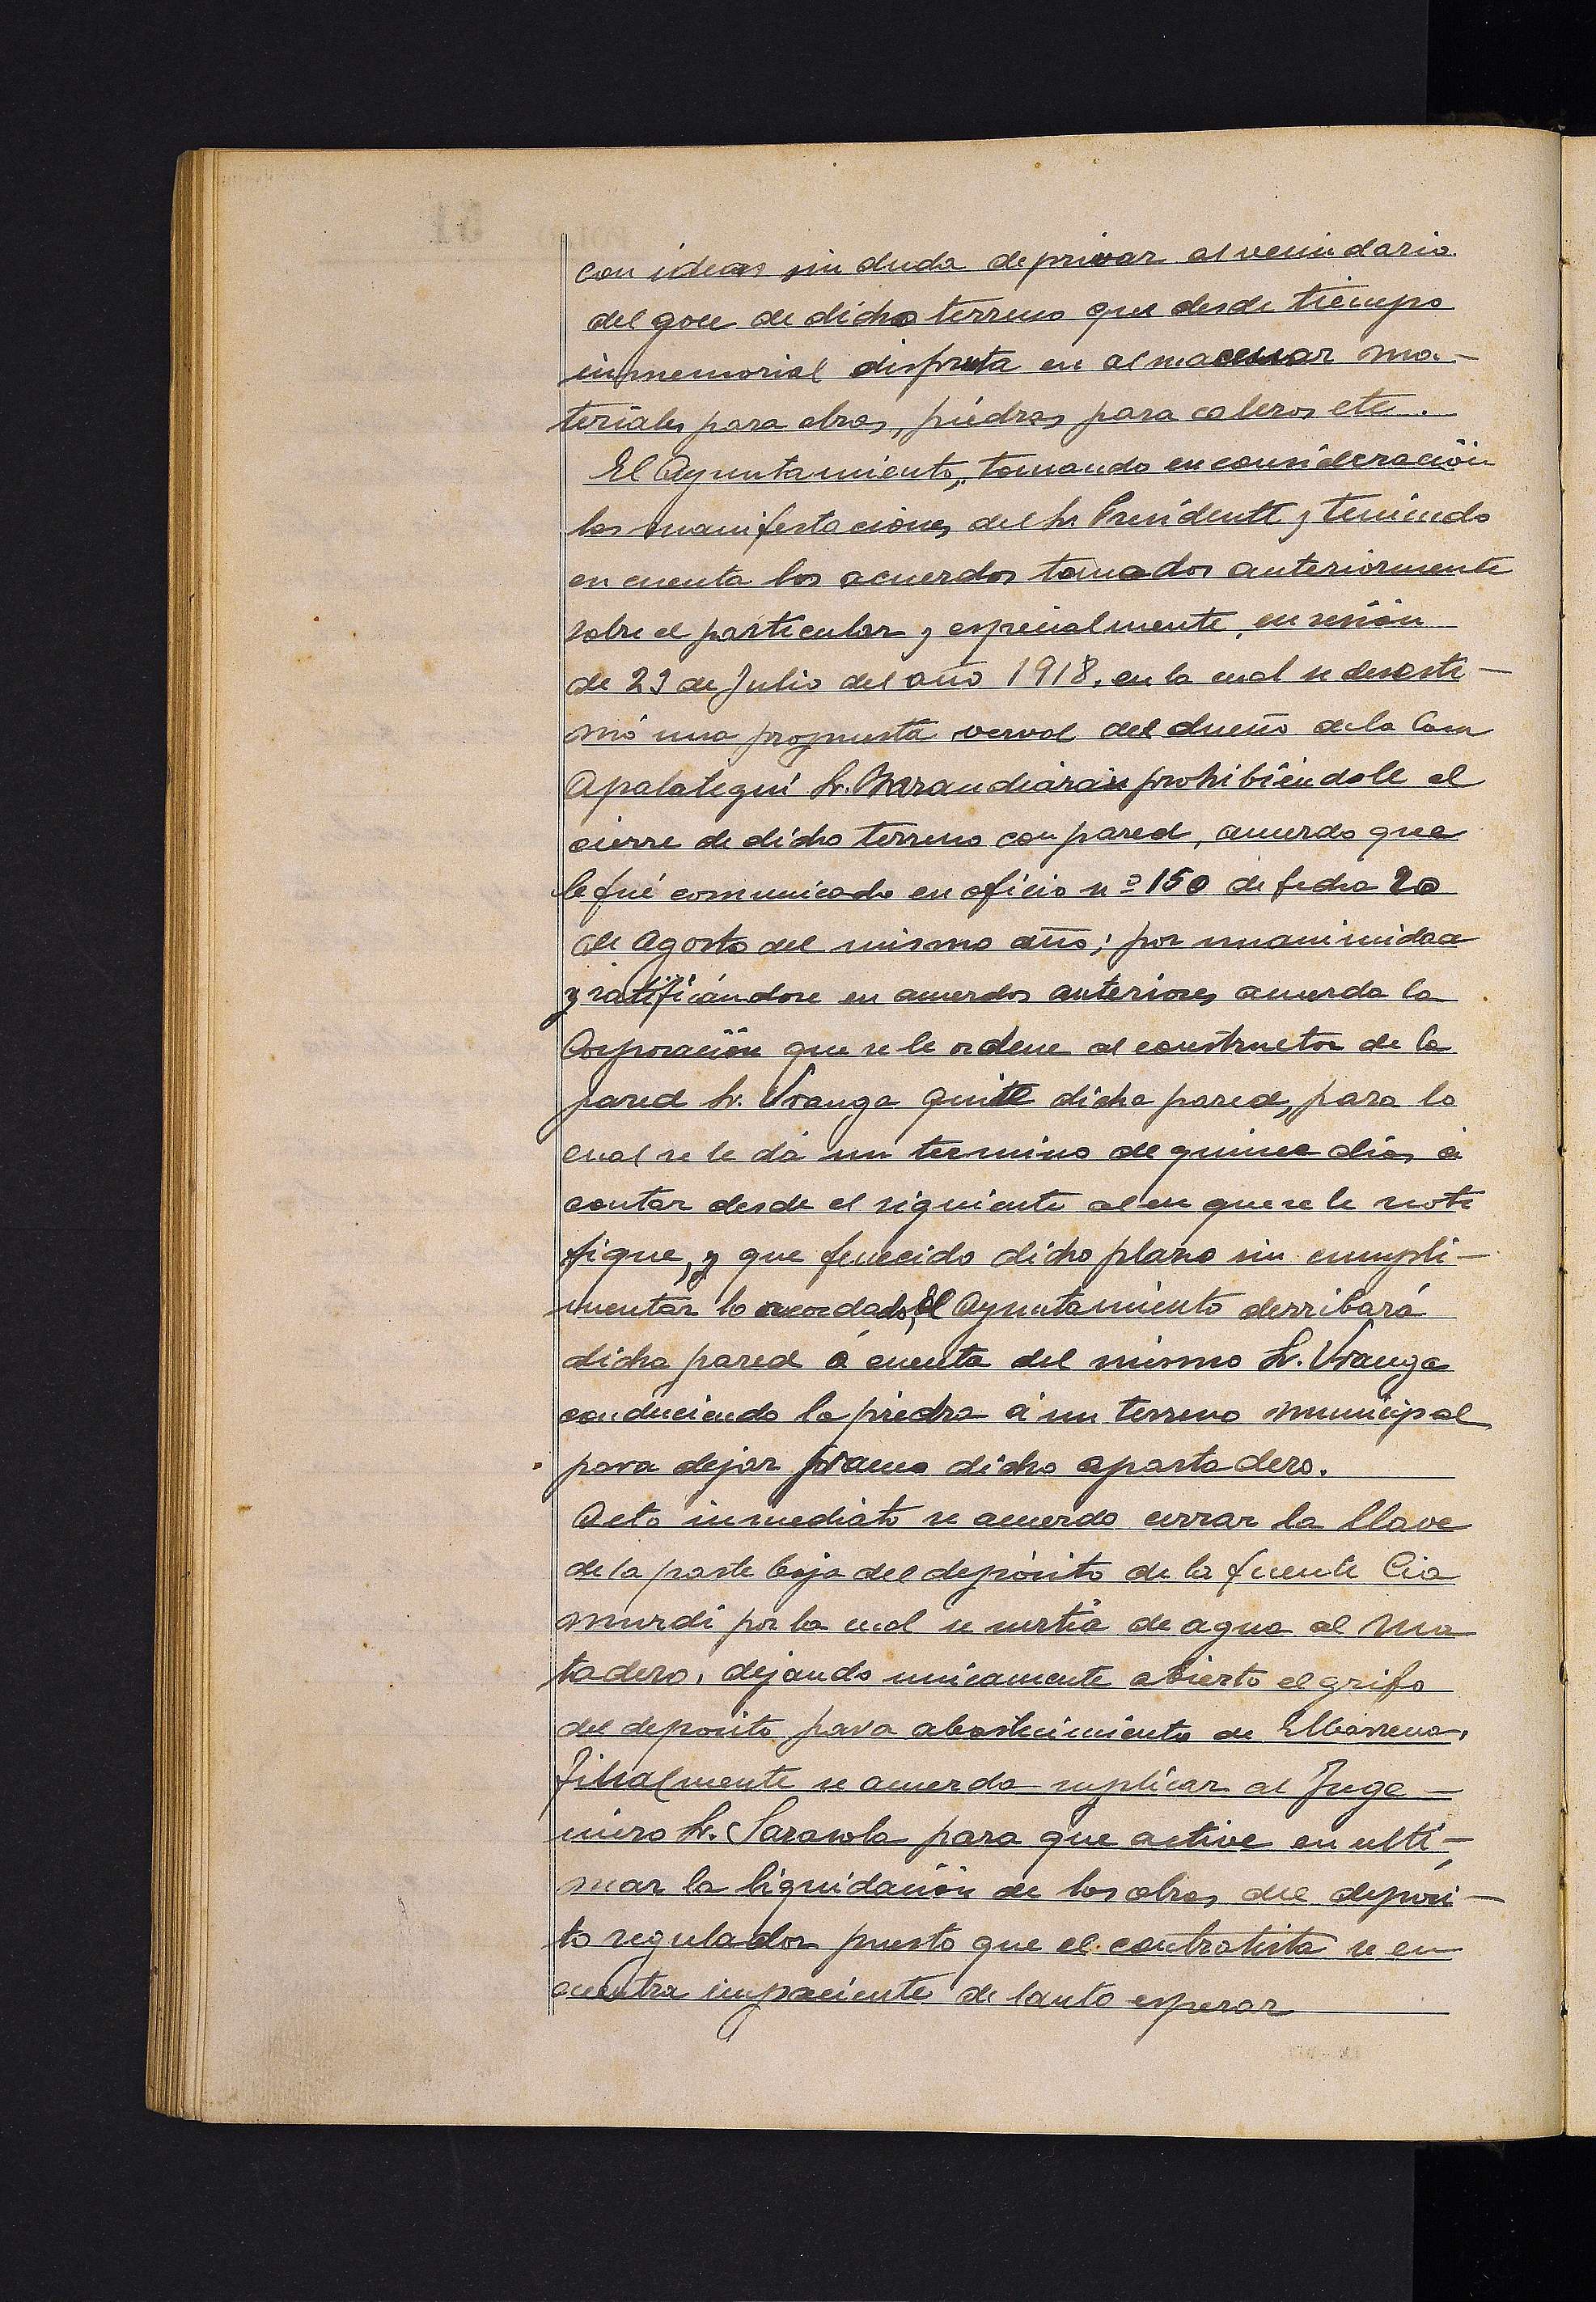 con ideas sin duda de privar al vecindario
del goce de dicho terreno que desde tiempo
inmemorial disfruta en almacenar ma-
teriales para obras, piedras para caleros etc.
El Ayuntamiento, tomando en consideración
las manifestaciones del Sr Presidente y teniendo
en cuenta los acuerdos tomados anteriormente
sobre el particular y especialmente, en sesión
de 23 de Julio del año 1918, en la cual se desesti-
mó una propuesta verval del dueño de la Casa
Apalategui Sr. Barandiarán prohibiéndole el
cierre de dicho terreno con pared, acuerdo que
le fué comunicado en oficio nº 150 de fecha 20
de Agosto del mismo año; por unanimidad
y ratificándose en acuerdos anteriores acuerda la
Corporación que se le ordene al constructor de la
pared Sr. Uranga quite dicha pared, para lo
cual se le dá un termino de quince dias á
contar desde el siguiente al en que se le noti
fique, y que fenecido dicho plazo sin cumpli-
mentar lo acordado, El Ayuntamiento derribará
dicha pared á cuenta del mismo Sr. Uranga
conduciendo la piedra á un terreno municipal
para dejar franco dicho apartadero.
Acto inmediato se acuerda cerrar la llave
de la parte baja del depósito de la fuente Cia
murdi por la cual se surtia de agua al Ma
tadero, dejando unicamente abierto el grifo
del deposito para abastecimiento de Elbarrena.
Finalmente se acuerda suplicar al Inge-
niero Sr. Sarasola para que active en ulti-
mar la liquidación de las obras del deposi-
to regulador puesto que el contratista se en
cuentra impaciente de tanto esperar